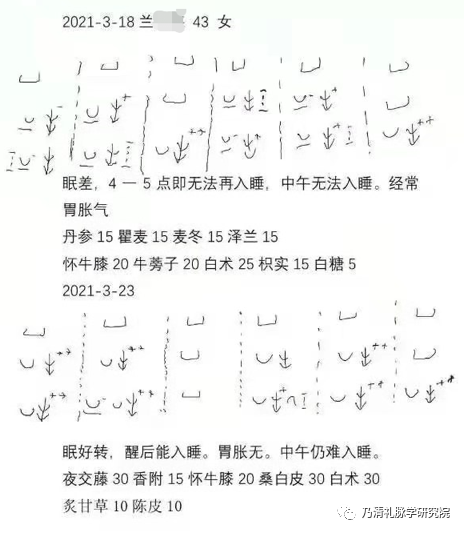 2021-3-18 兰 43 女
眠差，4 — 5 点即无法再入睡，中午无法入睡。经常
胃胀气
丹参 15 瞿麦 15 麦冬 15 泽兰 15
怀牛膝 20 牛蒡子 20 白术 25 枳实 15 白糖 5
2021-3-23
眠好转，醒后能入睡。胃胀无。中午仍难入睡。
夜交藤 30 香附 15 怀牛膝 20 桑白皮 30 白术 30
炙甘草 10 陈皮 10
乃清礼脉学研究院